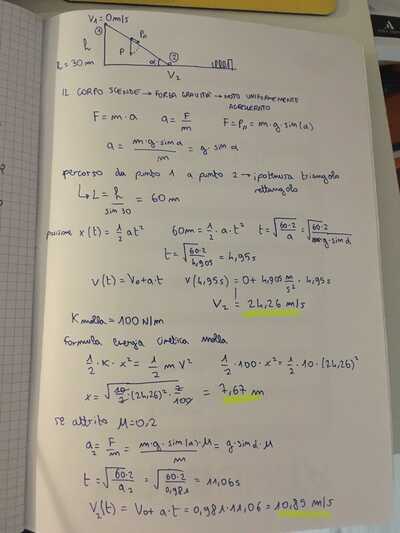 V1 = 0 m/s
①
P//
h
P
②
α
h = 30m
V2
IL CORPO SCENDE → FORZA GRAVITÀ → MOTO UNIFORMEMENTE
ACCELERATO
F = m · a    a = F/m    F = P// = m · g · sin(α)
a = m·g·sin α / m = g · sin α
percorso da punto 1 a punto 2 → ipotenusa triangolo
rettangolo
↳ L = h / sin 30 = 60 m
x(t) = 1/2 at²    60m = 1/2 · a · t²    t = √(60·2 / a) = √(60·2 / g·sin α)
t = √(60·2 / 4,905) = 4,95s
V(t) = V0 + a·t    V(4,95s) = 0 + 4,905 m/s² · 4,95s
V2 = 24,26 m/s
K molla = 100 N/m
formula energia cinetica molla
1/2 · K · x² = 1/2 m V²    1/2 · 100 · x² = 1/2 · 10 · (24,26)²
x = √(10/2 · (24,26)² · 2/100) = 7,67 m
se attrito μ = 0,2
a2 = F/m = m·g·sin(α)·μ / m = g·sin α · μ
t = √(60·2 / a2) = √(60·2 / 0,981) = 11,06s
V2(t) = V0 + a·t = 0,981·11,06 = 10,85 m/s